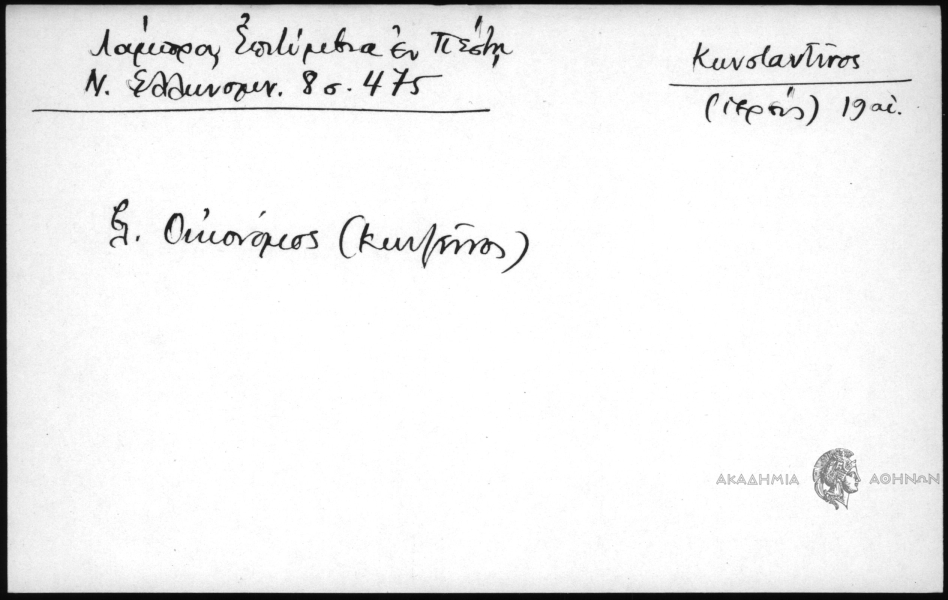 Λάμπρος Ἐπιτύμβια ἐν Πέστη
Ν. Ἑλληνομν. 8 σ. 475
Κωνσταντῖνος
(ἱερεύς) 19 αἰ.
Βλ. Οἰκονόμος (Κων/τῖνος)
ΑΚΑΔΗΜΙΑ ΑΘΗΝΩΝ